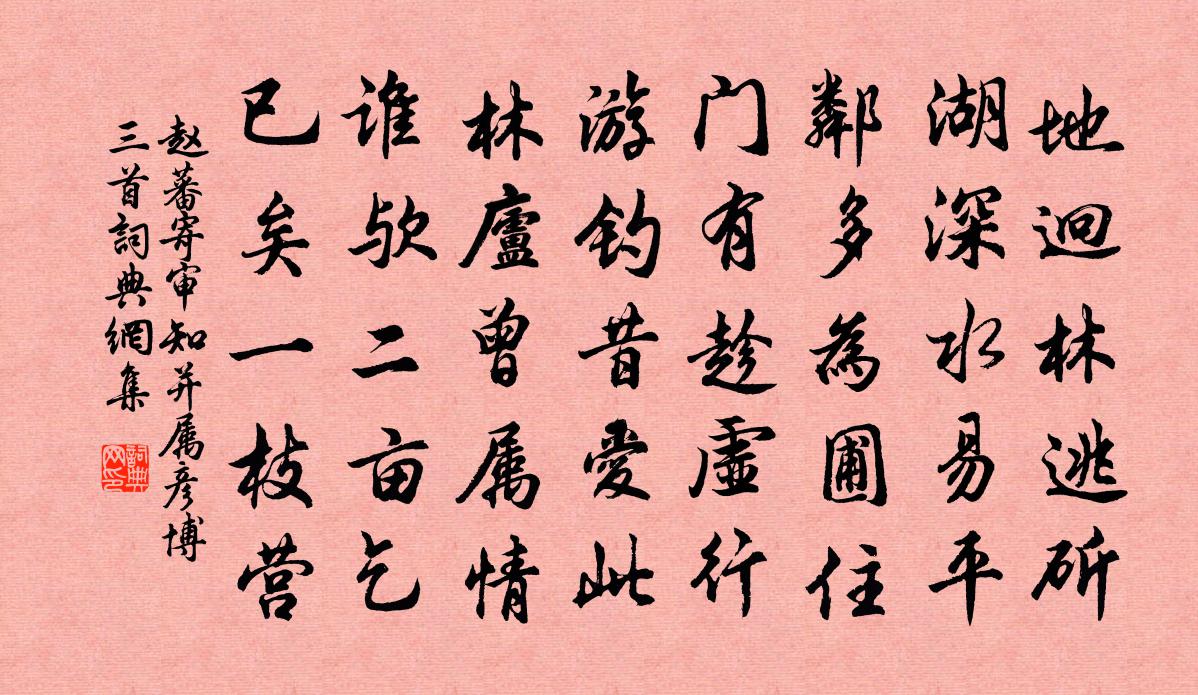 地迥林逃斫
湖深水易平
鄰多為圃住
门有趁虛行
游钓昔爱此
林廬曾属情
谁欤二亩乞
已矣一枝营
赵蕃寄审知并属彦博
三首詞典網集
詞典
网印